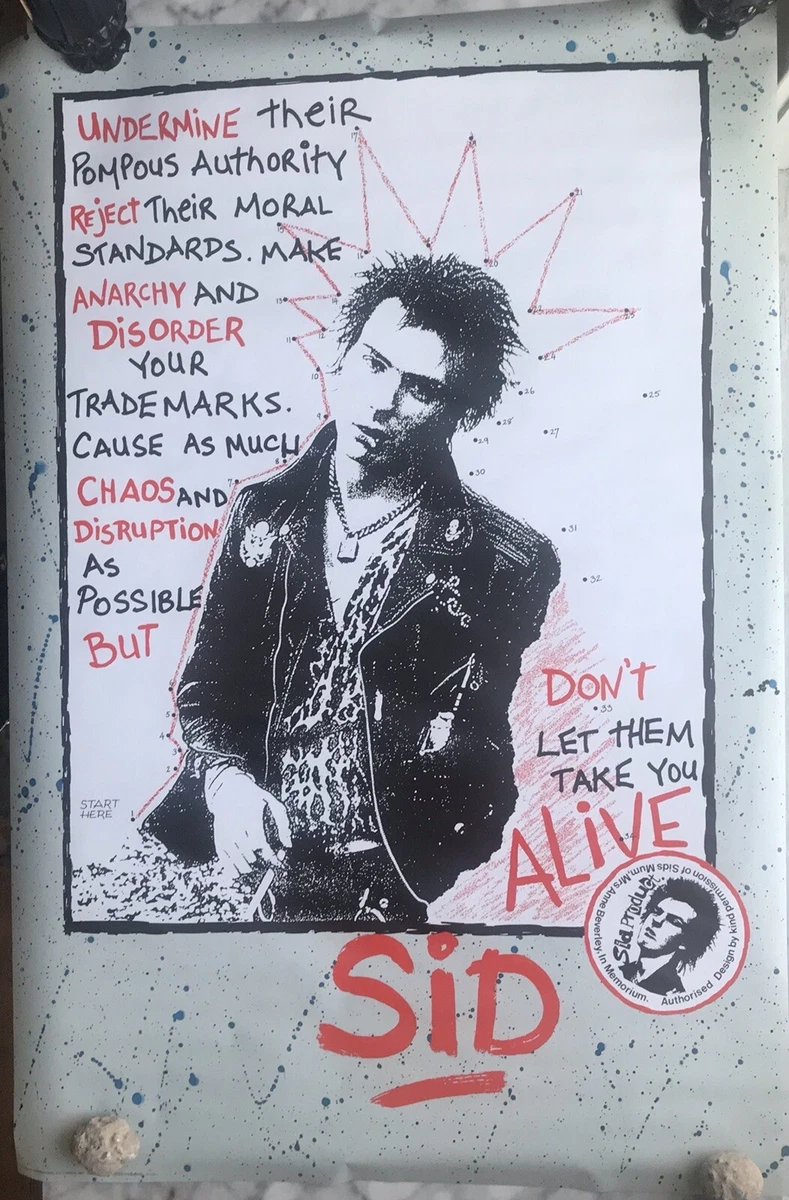 UNDERMINE their
POMPOUS AUTHORITY
REJECT THEIR MORAL
STANDARDS. MAKE
ANARCHY AND
DISORDER
YOUR
TRADEMARKS.
CAUSE AS MUCH
CHAOS AND
DISRUPTION
AS
POSSIBLE
BUT
DON'T
LET THEM
TAKE YOU
ALIVE
START
HERE
1
2
3
4
5
7
8
9
10
11
12
13
17
20
21
23
24
25
26
27
28
29
30
31
32
33
34
SiD
Sid Product
Authorised Design by kind permission of Sids Mum Mrs Anne Beverley, In Memorium.